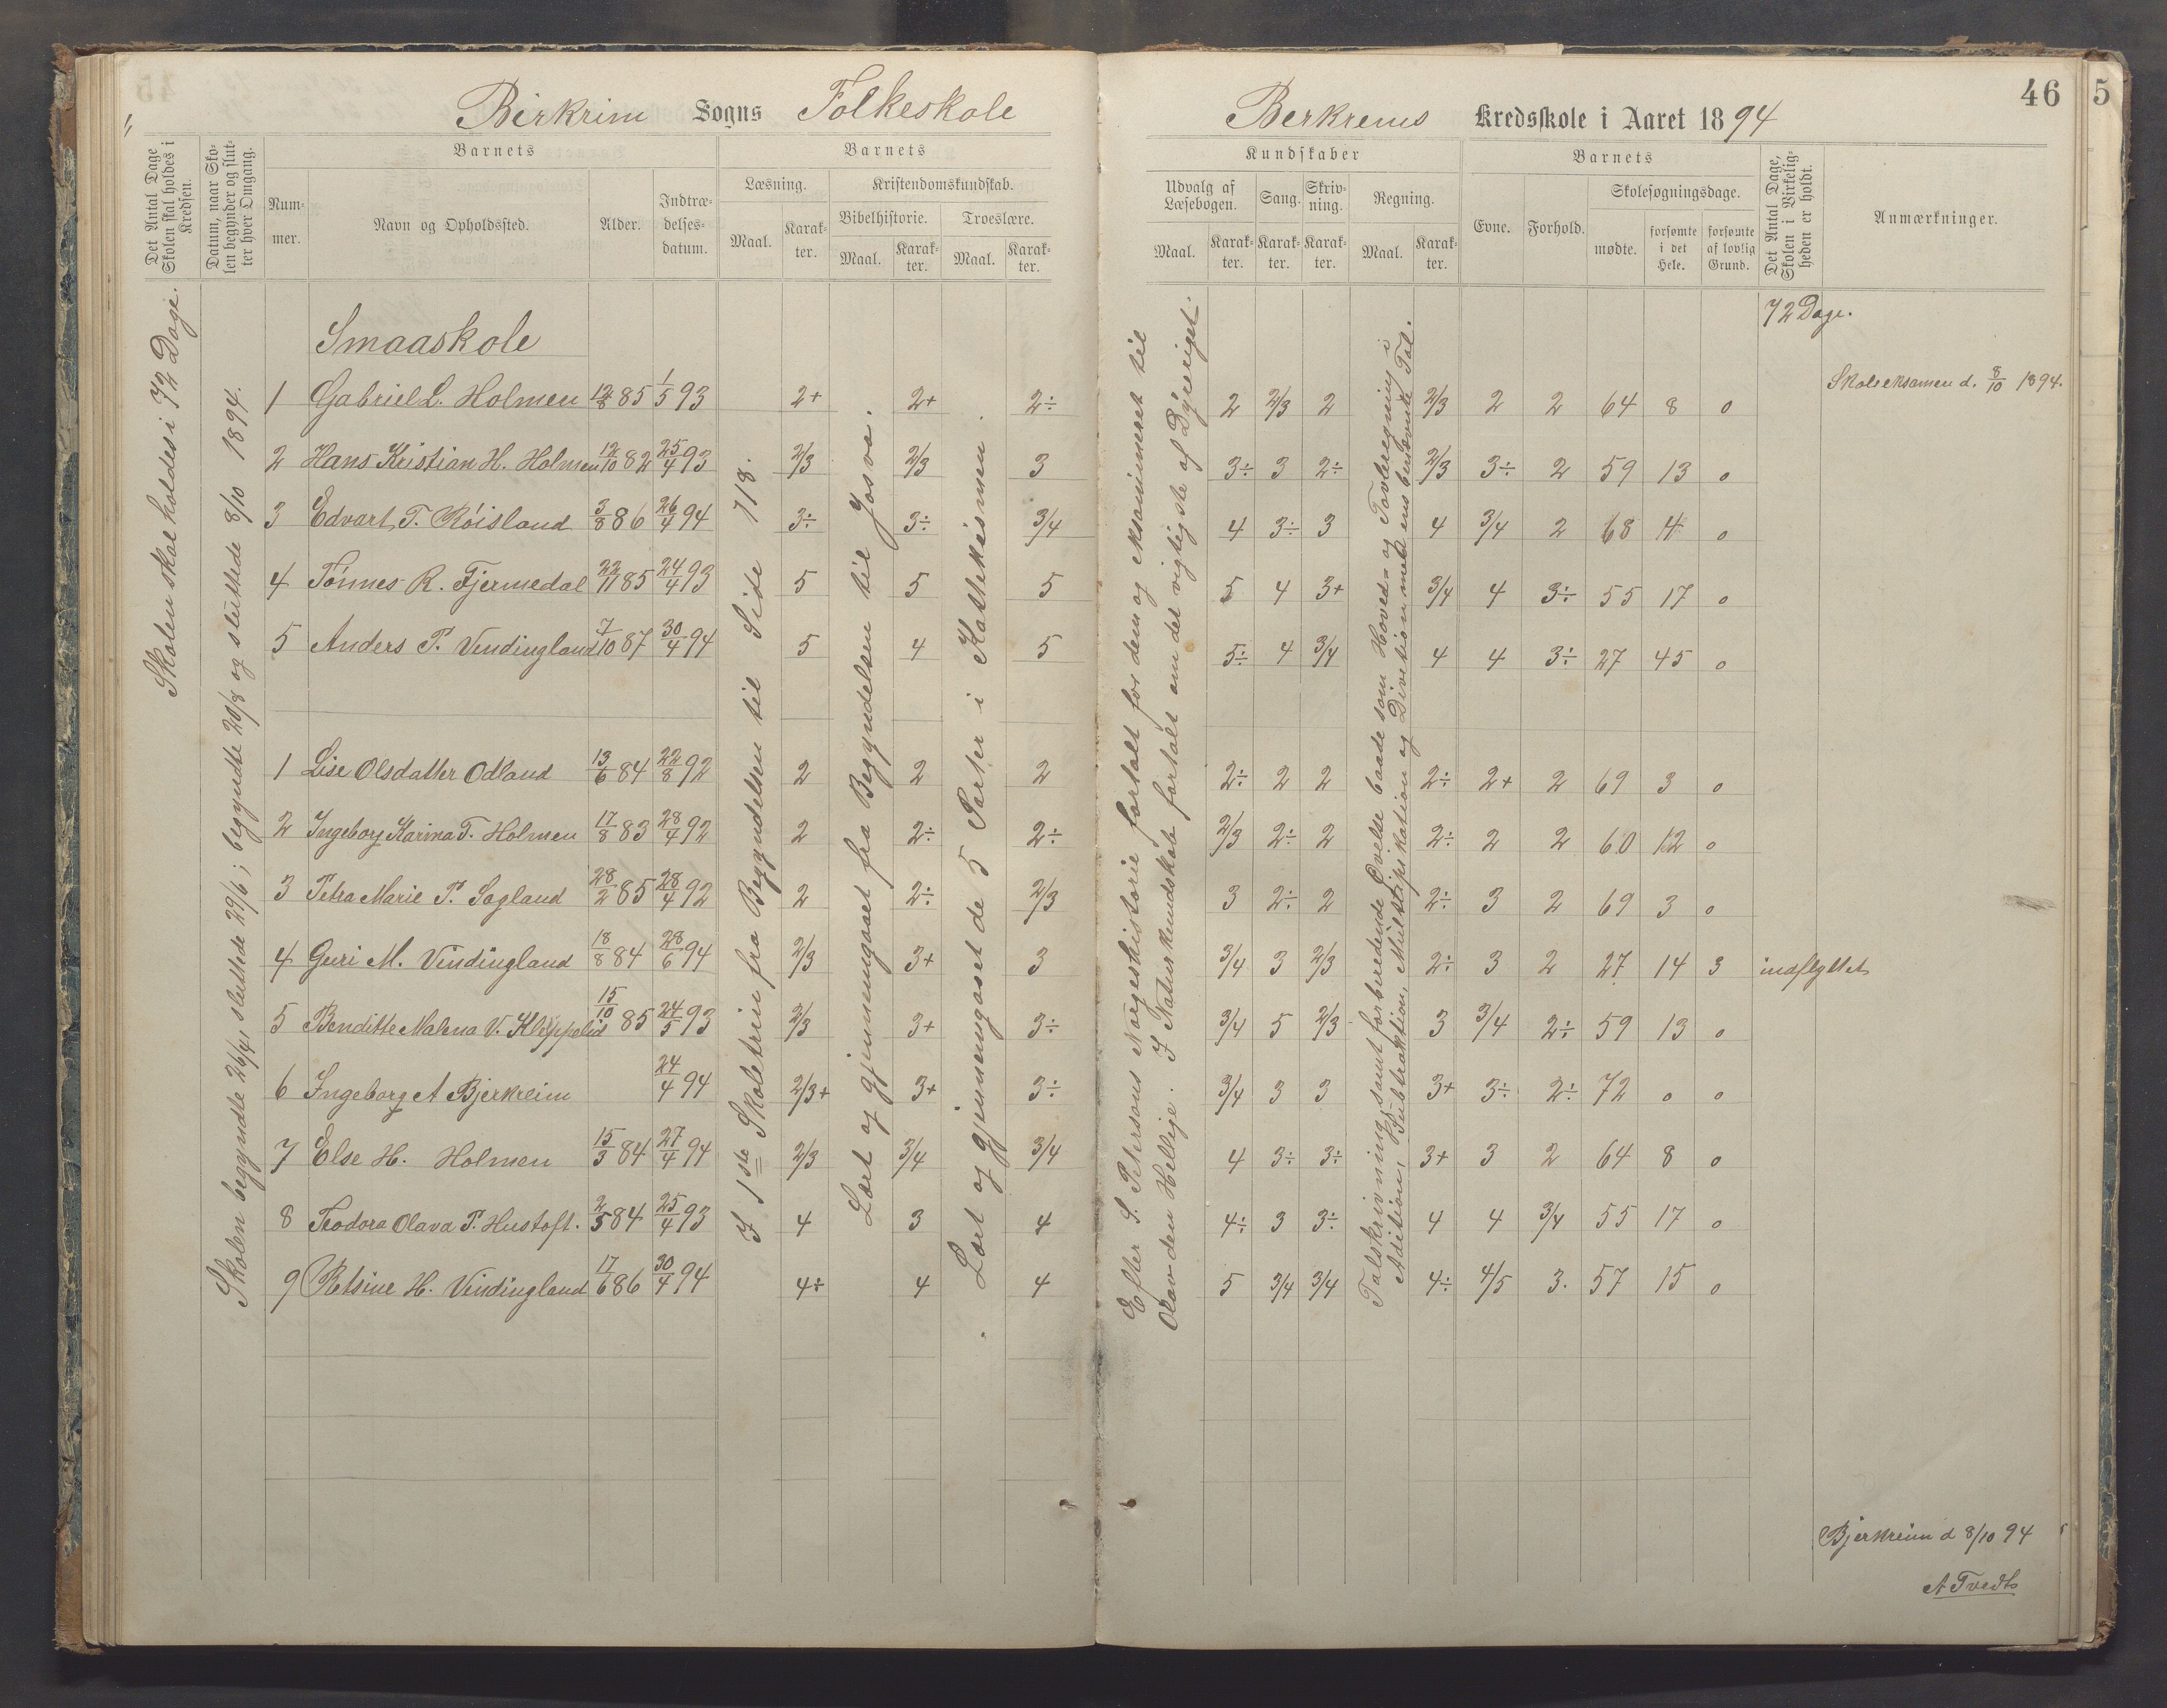 Birkrim Sogns Folkeskole
Berkrems Kredsskole i Aaret 1894
46
5
Det Antal Dage Skolen skal holdes i Kredsen.
Datum, naar Skolen begynder og slutter hver Omgang.
Barnets
Nummer.
Navn og Opholdssted.
Alder.
Indtrædelsesdatum.
Barnets
Læsning.
Maal.
Karakter.
Kristendomskundskab.
Bibelhistorie.
Maal.
Karakter.
Troeslære.
Maal.
Karakter.
Kundskaber
Udvalg af Læsebogen.
Maal.
Karakter.
Sang.
Karakter.
Skrivning.
Karakter.
Regning.
Maal.
Karakter.
Barnets
Evne.
Forhold.
Skolesøgningsdage.
mødte.
forsømte i det Hele.
forsømte af lovlig Grund.
Det Antal Dage, Skolen i Virkeligheden er holdt.
Anmærkninger.
Skolen skal holdes i 72 Dage.
Skolen begyndte 26/4, sluttede 29/6; begyndte 20/8 og sluttede 8/10 1894.
I 1ste Skoletrin fra Begyndelsen til Side 118.
Lært og gjennemgaaet fra Begyndelsen til Josva.
Lært og gjennemgaaet de 5 Parter i Katekismen.
Efter S. Petersens Norgeshistorie fortalt for dem og eksamineret til
Olav den Hellige. I Naturkundskab fortalt om det vigtigste af Dyreriget.
Talskrivning, samt forberedende Øvelse baade som Hoved- og Tavleregning i
Adition, Subtraktion, Multiplikation og Division med ensbenævnte Tal.
72 Dage.
Smaaskole
Skoleeksamen d. 8/10 1894.
1 Gabriel L. Holmen 12/8 85 1/5 93 2+ 2+ 2÷ 2 2/3 2 2/3 2 2 64 8 0
2 Hans Kristian H. Holmen 12/10 82 25/4 93 2/3 2/3 3 3÷ 3 2÷ 2/3 3÷ 2 59 13 0
3 Edvart T. Røisland 3/8 86 26/4 94 3÷ 3÷ 3/4 4 3÷ 3 4 3/4 2 68 4 0
4 Tønnes R. Fjermedal 22/11 85 24/4 93 5 5 5 5 4 3+ 3/4 4 3÷ 55 17 0
5 Anders P. Vendingland 7/10 87 30/4 94 5 4 5 5÷ 4 3/4 4 4 3÷ 27 45 0
1 Lise Olsdatter Odland 13/6 84 22/8 92 2 2 2 2÷ 2 2 2÷ 2+ 2 69 3 0
2 Ingeborg Karina T. Holmen 17/8 83 28/4 92 2 2÷ 2÷ 2/3 2÷ 2 2÷ 2 2 60 12 0
3 Petra Marie P. Sagland 28/2 85 28/4 92 2 2÷ 2/3 3 2÷ 2 2÷ 3 2 69 3 0
4 Guri M. Vindingland 18/8 84 28/6 94 2/3 3+ 3 3/4 3 2/3 2÷ 3 2 27 14 3 indflyttet
5 Benditte Malena V. 15/10 85 24/5 93 2/3 3+ 3÷ 3/4 5 2/3 3 3/4 2÷ 59 13 0
6 Ingeborg A Bjerkreim 24/4 94 2/3+ 3+ 3÷ 3/4 3 3 3+ 3÷ 2÷ 72 0 0
7 Else H. Holmen 15/3 84 27/4 94 2/3 3/4 3/4 4 3÷ 3÷ 3+ 3 2 64 8 0
8 Teodora Olava P. Hustoft. 2/5 84 25/4 93 4 3 4 4÷ 3 3÷ 4 4 3/4 55 17 0
9 Betsine H. Vindingland 17/6 86 30/4 94 4÷ 4 4 5 3/4 3/4 4÷ 4/5 3. 57 15 0
Bjerkreim d 8/10 94
A Tvedt